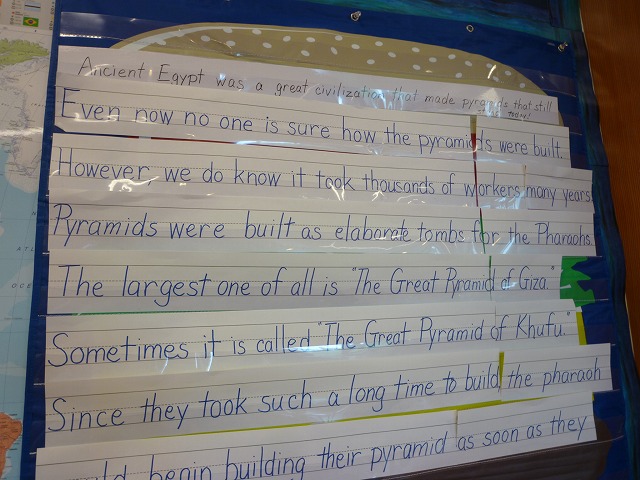 Ancient Egypt was a great civilization that made pyramids that still
today!
Even now no one is sure how the pyramids were built.
However, we do know it took thousands of workers many years
Pyramids were built as elaborate tombs for the Pharaohs.
The largest one of all is "The Great Pyramid of Giza."
Sometimes it is called "The Great Pyramid of Khufu."
Since they took such a long time to build the pharaoh
begin building their pyramid as soon as they